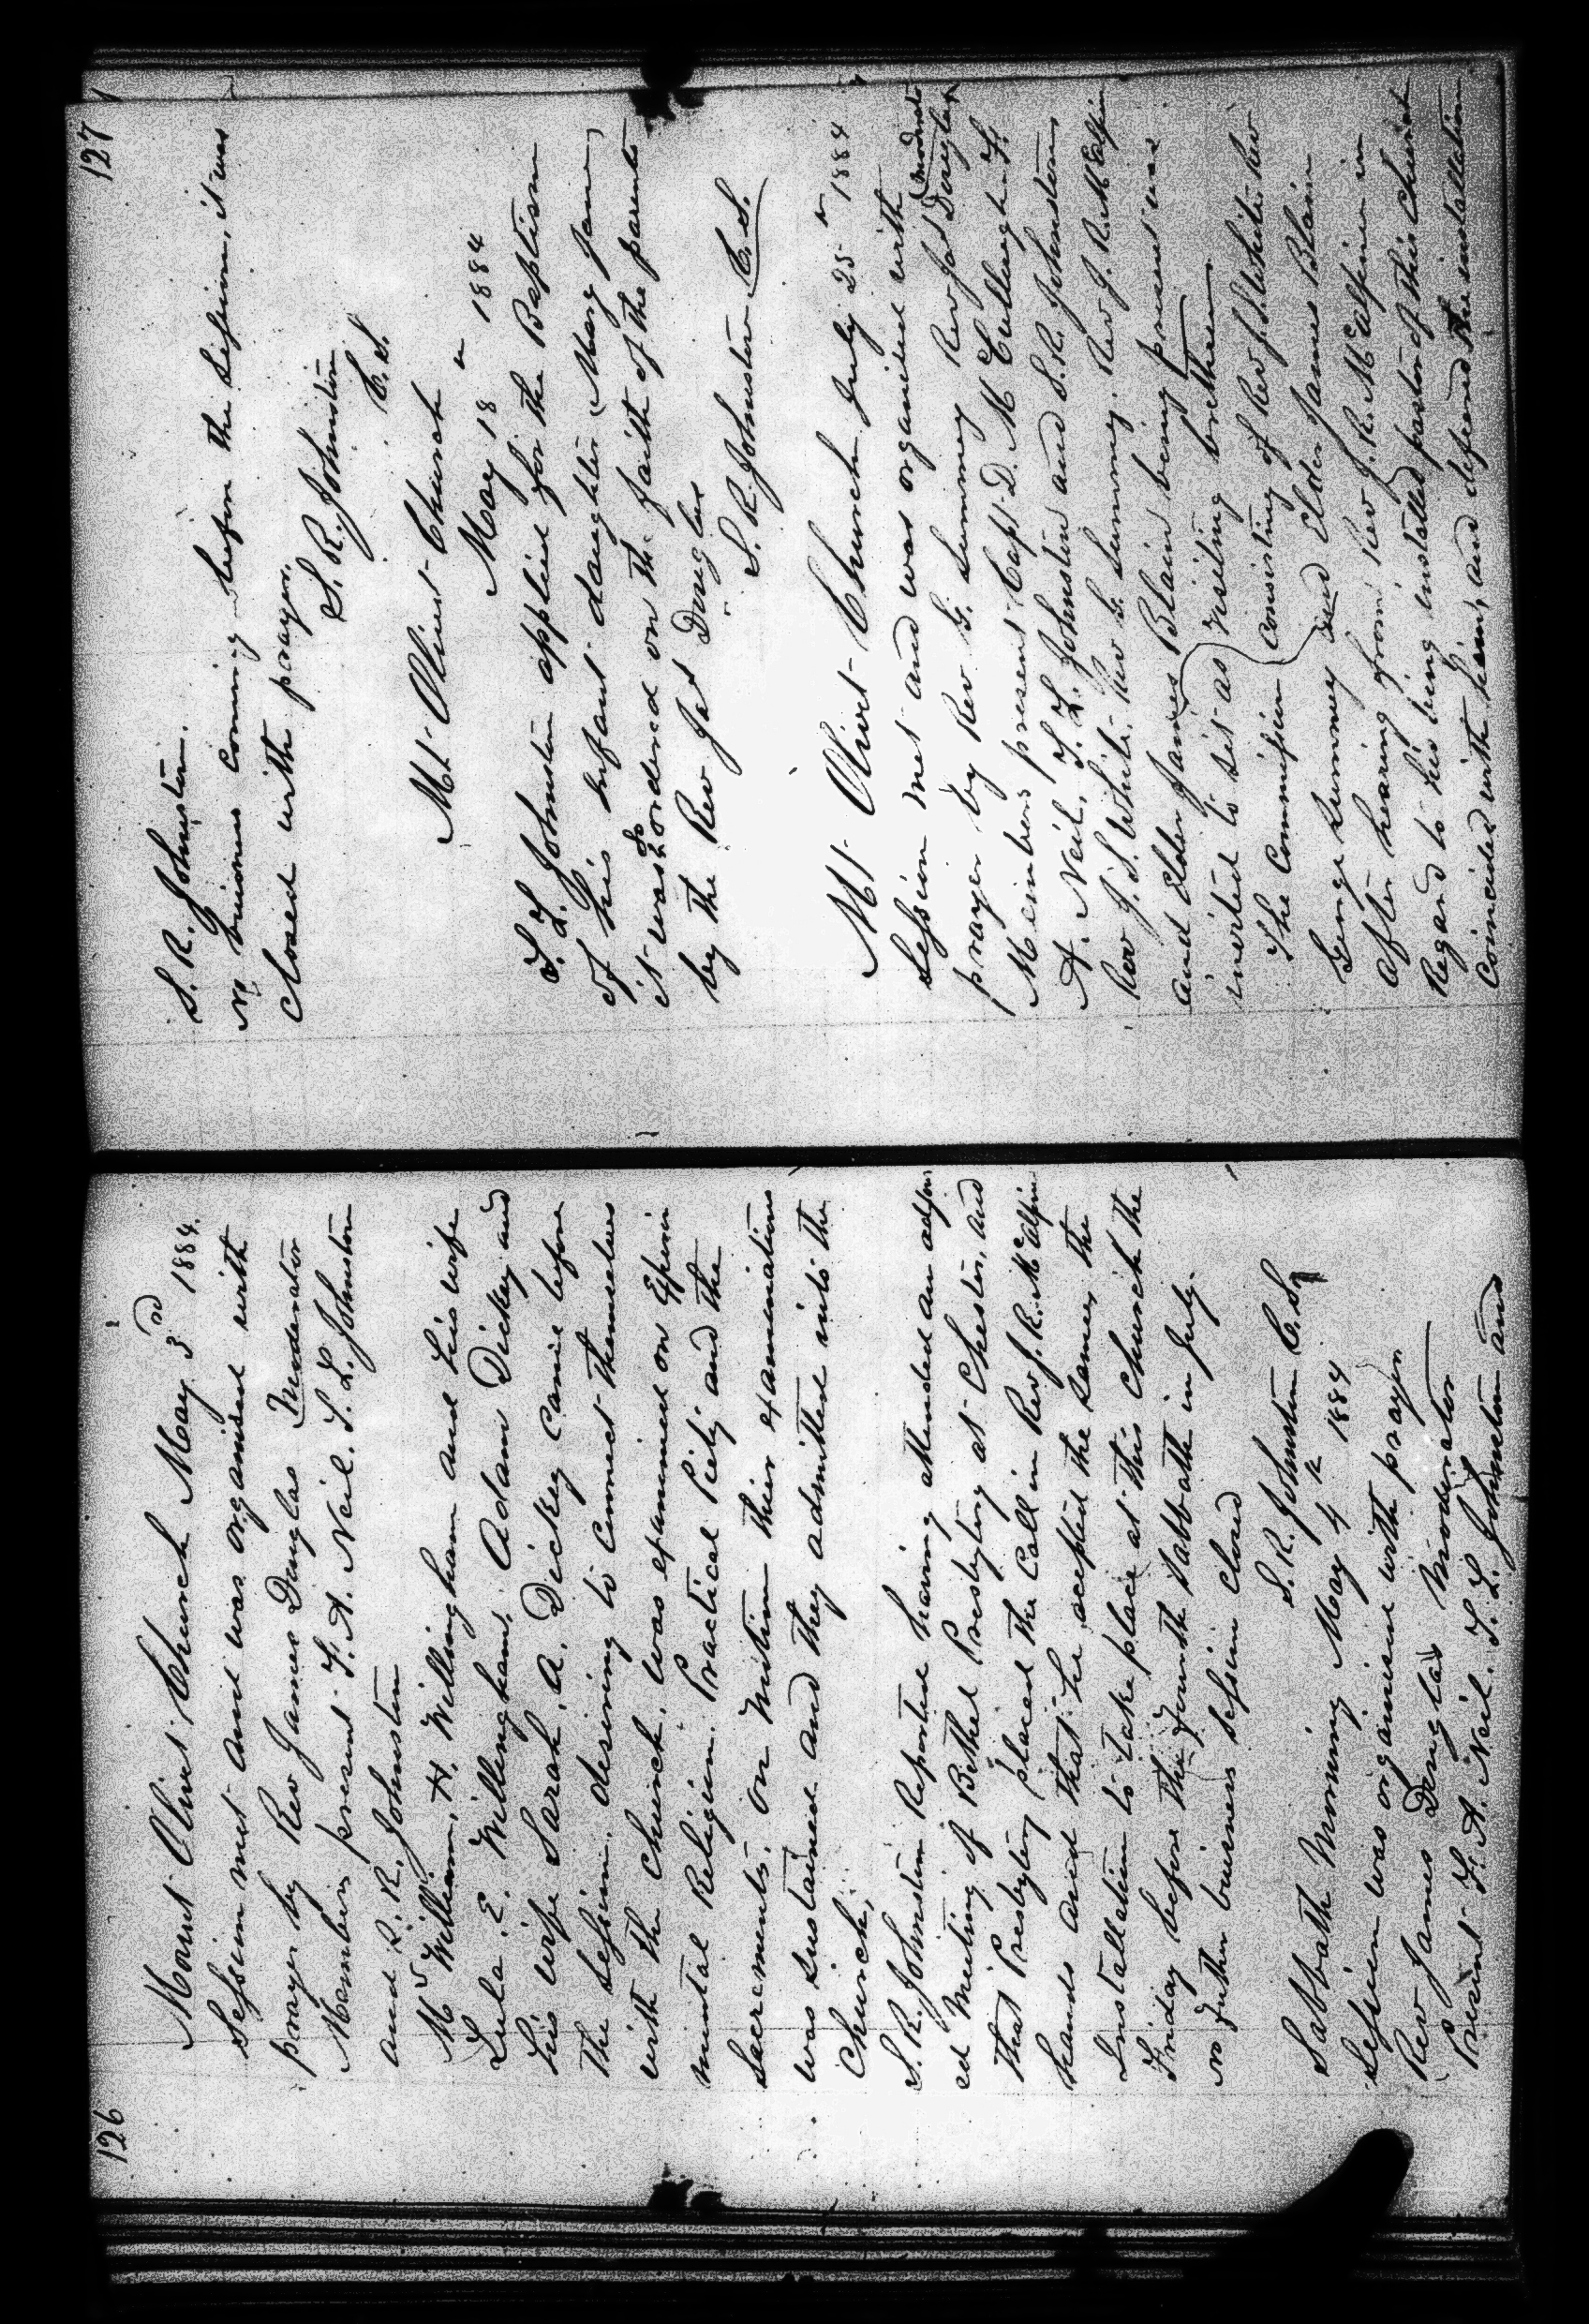 126
Mount Olivet Church May 3rd 1884.
Session met and was organised with
prayer by Rev James Douglas Moderator
Members present F. A. Neil. T. L. Johnston
and S. R. Johnston
Mr William. H. Willingham and his wife
Lula. E. Willingham, Adam Dickey and
his wife Sarah. A. Dickey came before
the Session. desiring to connect themselves
with the Church. was examined on Experi
mental Religion. Practical Piety and the
Sacrements. on motion their examinations
was sustained and they admitted into the
Church,
S. R. Johnston Reported having attended an adjourn
ed Meeting of Bethel Presbytery at Chester, and
that Presbytery placed the Call in Rev J. R. McAlpine
hands and that he accepted the same, the
Installation to take place at this Church the
Friday before the fourth Sabbath in July.
no futher buisness Session closed
S. R. Johnston C. S.
Sabbath Morning May 4th 1884
Session was organised with prayer
Rev James Douglas Moderator
Present F. A. Neil. T. L. Johnston and
127
S. R. Johnston.
No buisness coming before the Session, it was
closed with prayer.
S. R. Johnston
C. S.
Mt Olivet Church
May 18th 1884
T. L. Johnston applied for the Baptism
of his infant daughter (Mary Jane)
it was so ordered on the faith of the parents
by the Rev Jas Douglas
S. R. Johnston C. S.
Mt Olivet Church July 25th 1884
Session met and was organised with
prayer by Rev G. Summey Rev Jas Douglas Moderator
Members present Capt D. McCullough. F.
A. Neil, T. L. Johnston and S. R. Johnston
Rev J. S. White. Rev G Summey. Rev J. R. McAlpine
and Elder James Blain being present was
invited to sit as visiting brethren.
The Commission consisting of Rev J. S. White Rev
George Summey and Elder James Blain
after hearing from Rev J. R. McAlpine in
Regard to his being installed pastor of this Church
Coincided with him, and defered the installation